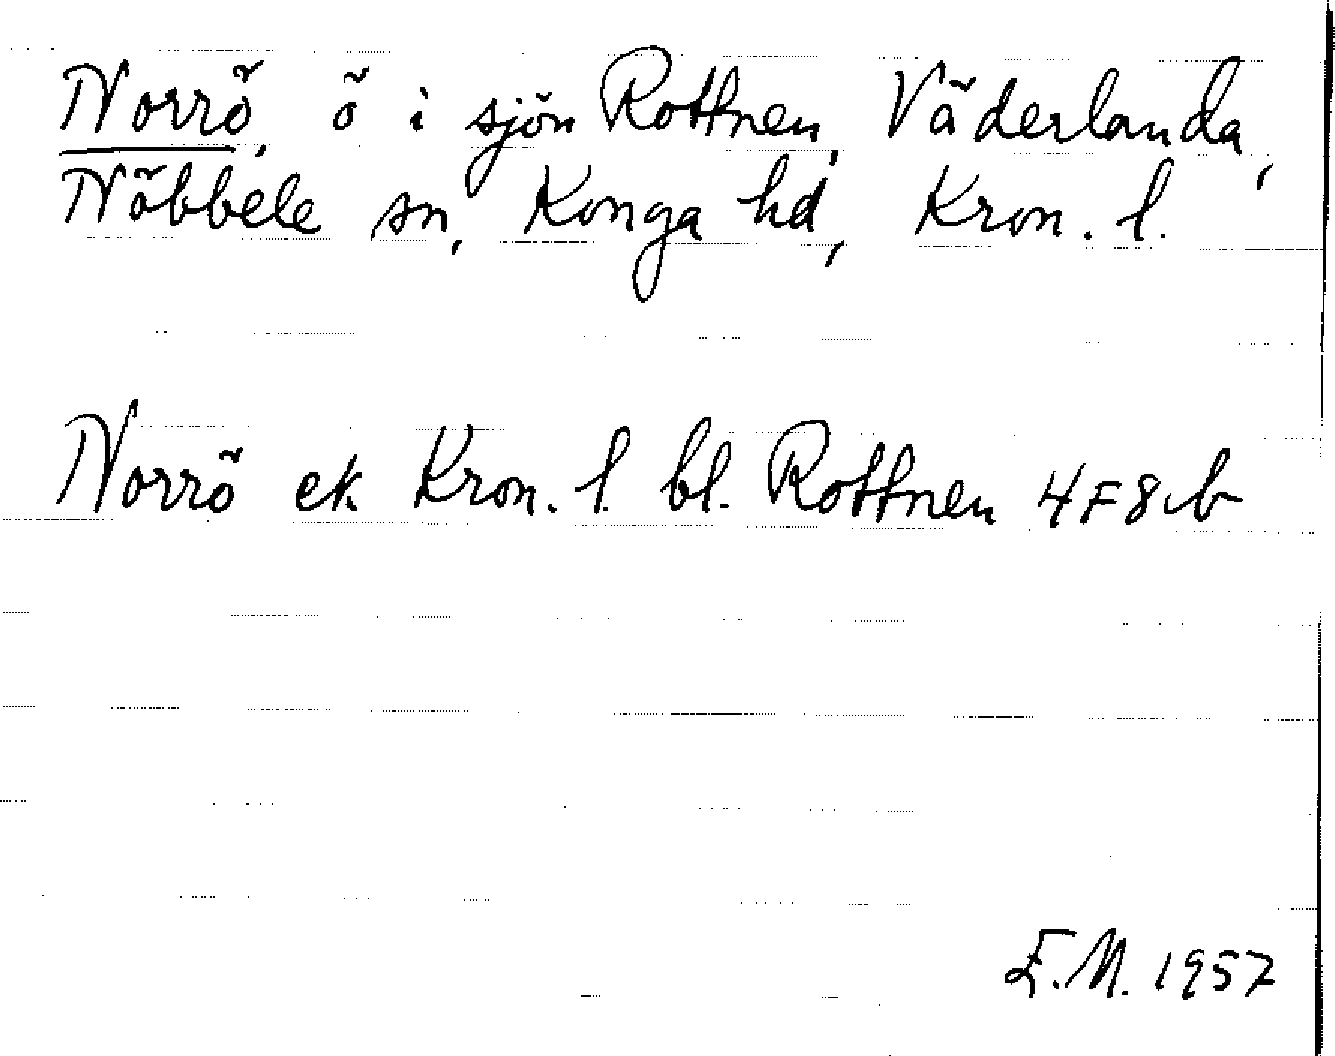 Norrö, ö i sjön Rottnen, Väderlanda,
Nöbbele sn, Konga hd, Kron. l.
Norrö ek Kron. l. bl. Rottnen 4F8b
E.M. 1957